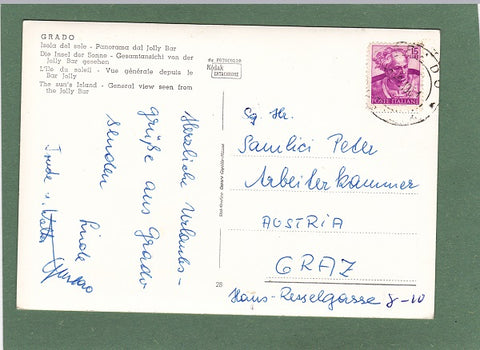 GRADO
Isola del sole - Panorama dal Jolly Bar
Die Insel der Sonne - Gesamtansicht von der
Jolly Bar gesehen
L'île du soleil - Vue générale depuis le
Bar Jolly
The sun's Island - General view seen from
the Jolly Bar
Kodak
EKTACHROME
15
POSTE ITALIANE
Herzliche Urlaubs-
grüße aus Grado
senden
Linde
28
Samlici Peter
Arbeiterkammer
AUSTRIA
GRAZ
Hans-Resselgasse 8-10